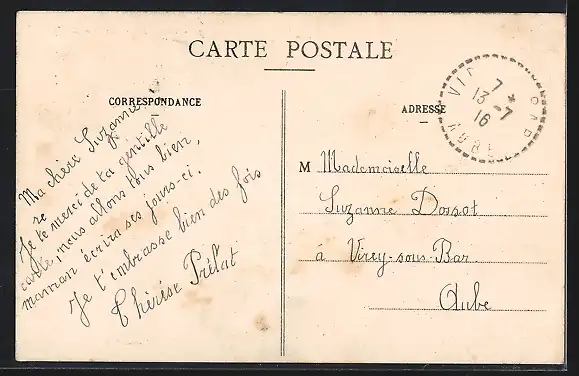 CARTE POSTALE
CORRESPONDANCE
Ma chère Suzanne,
Je te remercie de ta gentille
carte, nous allons tous bien,
maman écrira ses jours-ci.
Je t'embrasse bien des fois
Thérèse Prélat
ADRESSE
M Mademoiselle
Suzanne Dossot
à Virey-sous-Bar
Aube
7 *
13 -7
16
AUBE